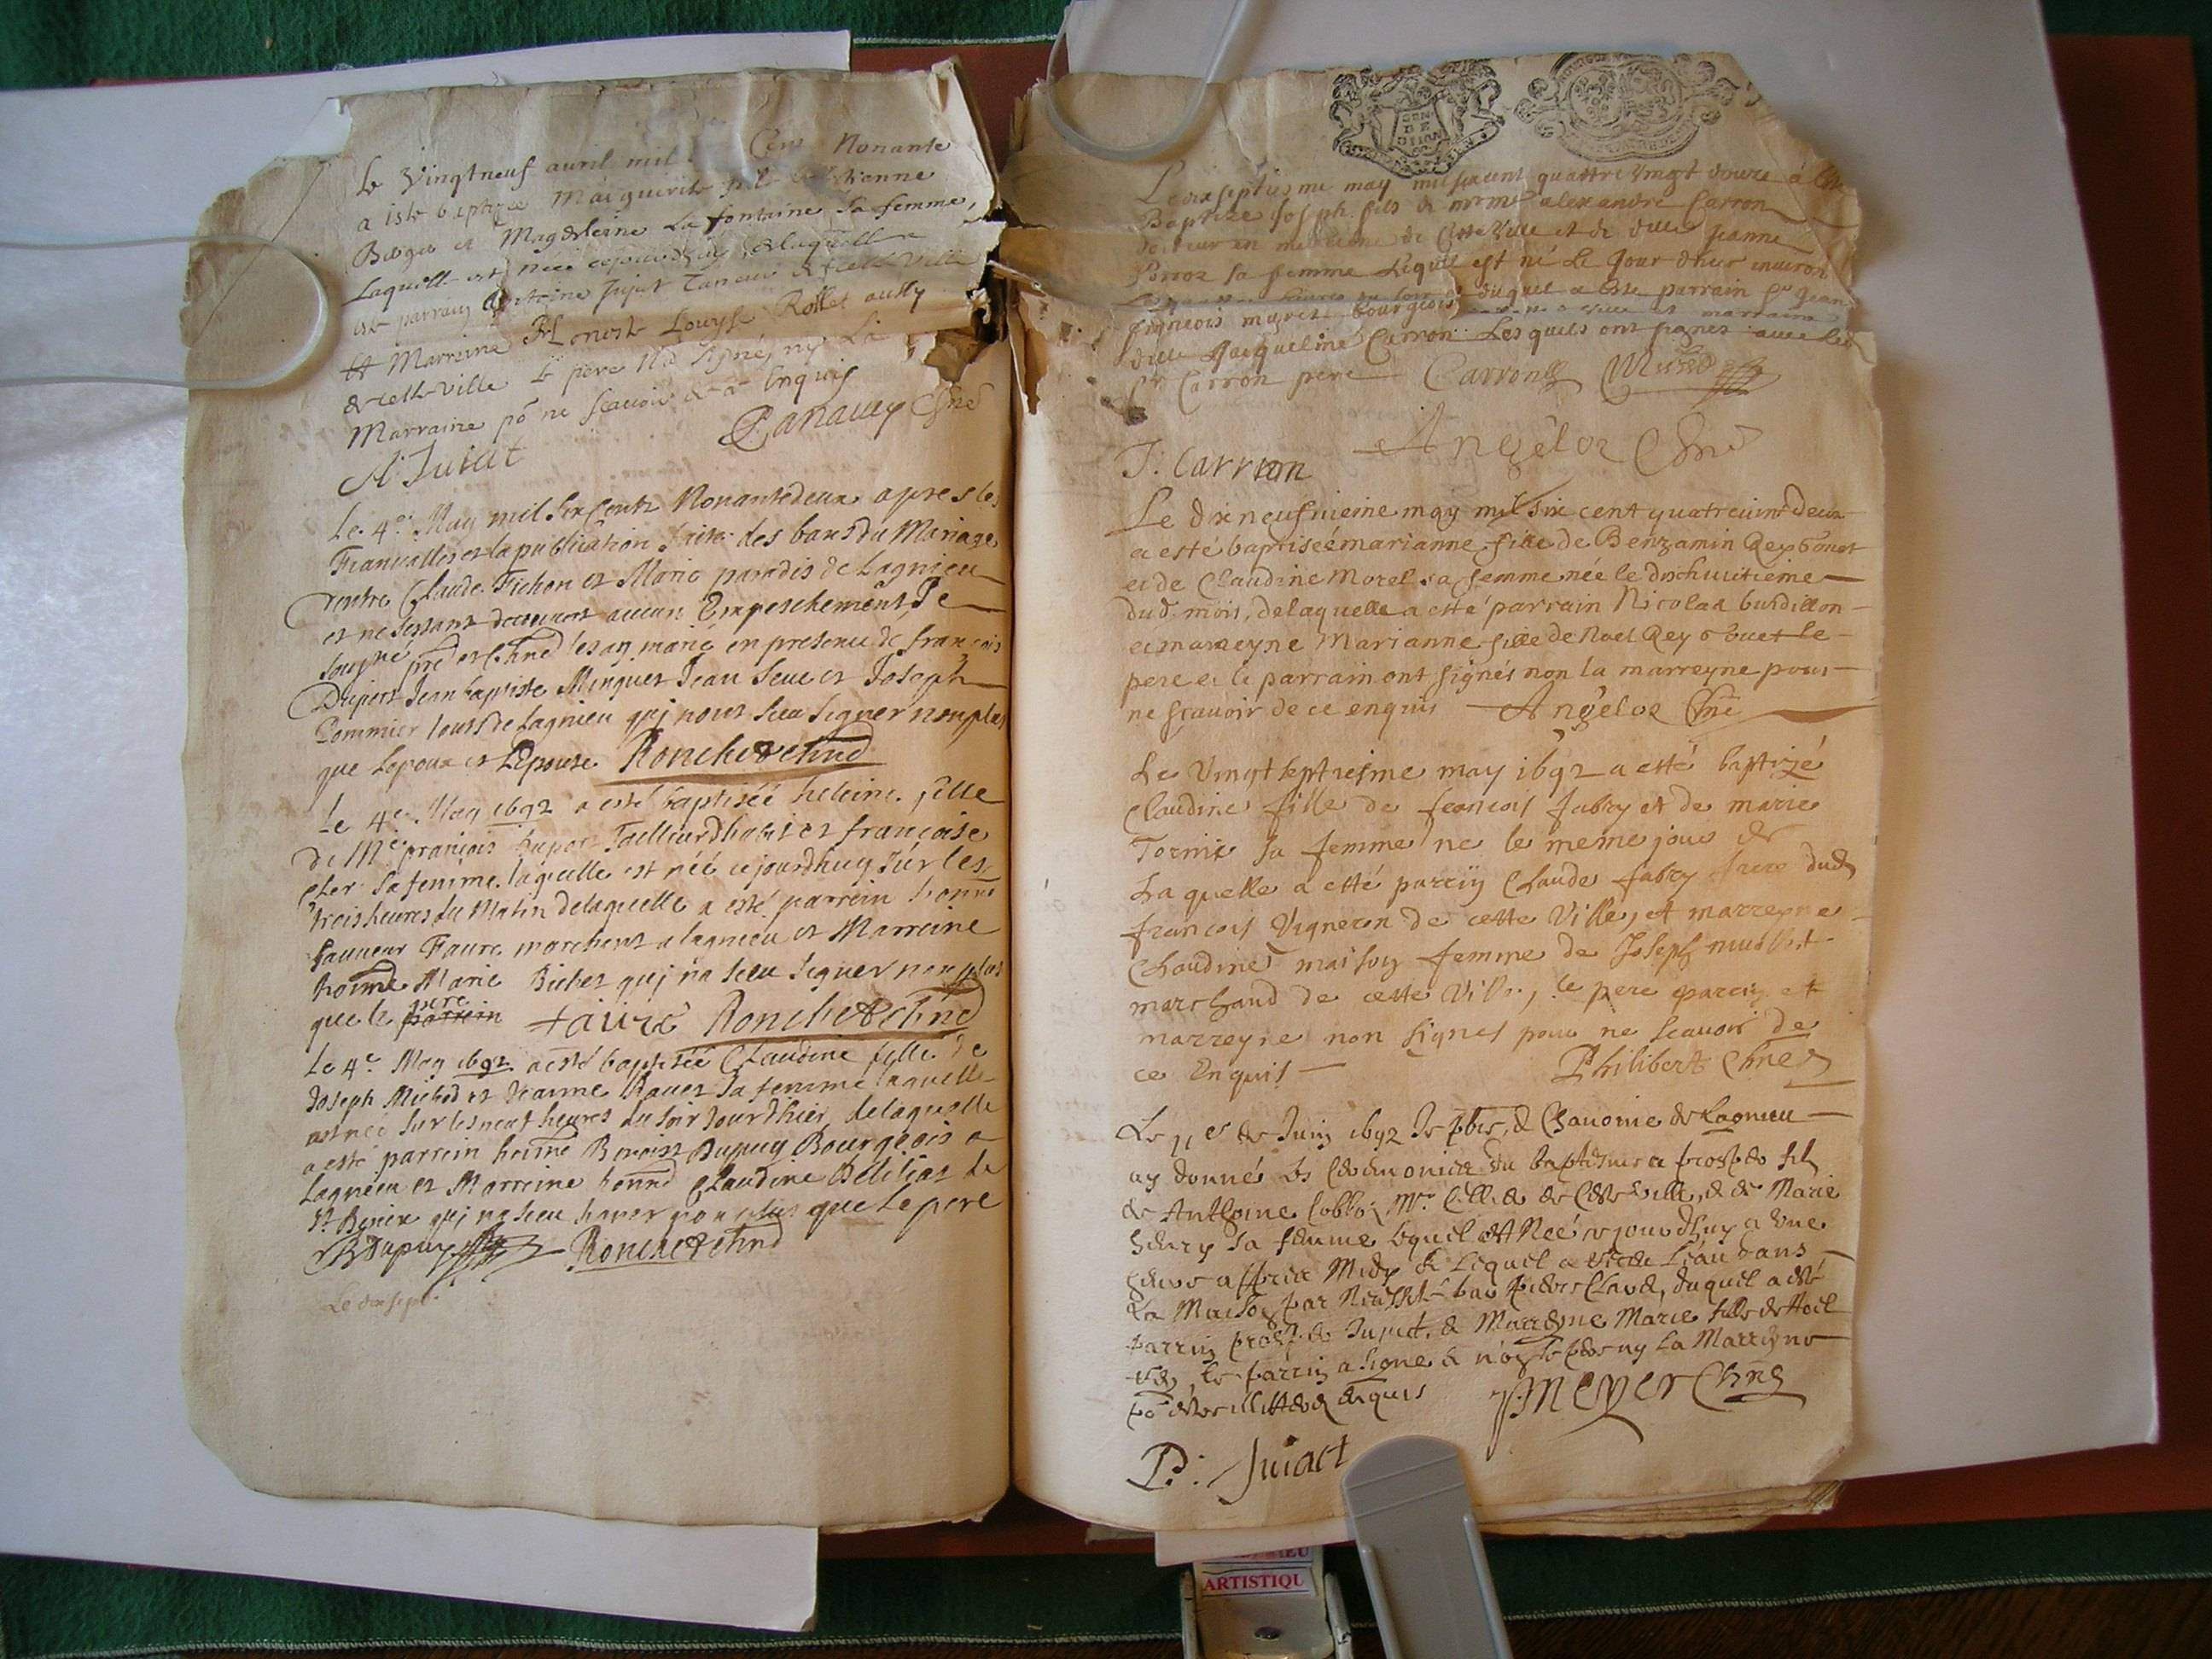 Le Vingtneuf avril mil Cens Nonante
a iste baptizee Marguerite fille Estienne
et Magdeleine La fontaine sa femme,
Laquelle est née cejourdhuy, delaquelle a
este parrain Antoine Jujat Taneur de cette Ville
et Marreine Honeste Louyse Rollet aussy
de cette ville le pere N'a signé, ny La
Marraine po ne scavoir de ce Enquis
A Juiat Canauey Chne
Le 4e May mil six Cents Nonante deux apres les
Fiancailles et la publication faite des bans du Mariage
entre Claude Fichon et Marie paradis de Lagnieu
et ne sestant decouvert aucun Empeschement, Je
soussigné pre et Chne les ay marié en presence de francois
Dupert Jean baptiste Minguet Jean Seue et Joseph
Pommier tous de Lagnieu qui n'ont sceu signer non plus
que Lepoux et L'Epouse Ronchet chne
Le 4e May 1692 a esté baptisée heleine fille
de Me francois dupert Tailleur d'habis et francoise
Cler sa femme laquelle est née cejourdhuy sur les
trois heures du Matin delaquelle a esté parrein honne
Sauueur Faure marchent a lagnieu et Marreine
honne Marie Bichet qui na sceu signer non plus
que le parrein pere faure Ronchet chne
Le 4e May 1692 a esté baptisée Claudine fille de
Joseph Michod et Jeanne Rauet sa femme laquelle
est née sur les neuf heures du soir Jour d'hier, de laquelle
a esté parrein honne Benoist Dupuy Bourgeois a
Lagnieu et Marreine honne Claudine Delilias de
St Benier qui na sceu signer non plus que Le pere
BDupuy Ronchet chne
Le dix sept
Le dix septiesme may mil six cent quattre vingt douze à Esté
Baptize Joseph fils de alexandre Carron
docteur en medecine de Cette Ville et de delle Jeanne
Perroz sa femme Lequel est né Le Jour d'hier environ
Les heures du soir duquel a este parrain Sr Jean
francois muret bourgeois de ville et marraine
delle Jacqueline Carron Lesquels ont signez avec led
Sr Carron pere Carron Muret
J: Carron Angelot Chne
Le dix neufuieme may mil six cent quatreuint deux
a esté baptiseé marianne fille de Benjamin Reybouet
et de Claudine Morel sa femme née le dixhuitieme
dud. mois, delaquelle a esté parrain Nicolas burdillon
et marreyne Marianne fille de Noel Reybouet le
pere et le parrain ont signés non la marreyne pour
ne scauoir de ce enquis Angelot Chne
Le Vingt septiesme may 1692 a etté baptizé
Claudine fille de francois fabry et de marie
Tornié sa femme ne le meme jour de
Laquelle a etté parrin Claude fabry frere dud
francois Vigneron de cette Ville, et marreyne
Claudine maison femme de Joseph
marchand de cette Ville, le pere parrin et
marreyne non signes pour ne scauoir de
ce Enquis Philibert Chne
Le 11e de Juin 1692 Je pbre, & Chanoine de Lagnieu
ay donné les Ceremonies du baptesme a prosper fils
de Anthoine Me de Cette ville, & de Marie
henry sa femme lequel est Neé cejourdhuy a Une
heure apprez Midy & Lequel a reçu L'eau dans
La Maison par Neussité par pierre Claud, duquel a esté
parrin prosper Jujat & Marreyne Marie fille de
le parrin a signé & non Le pere ny La Marreyne
po estre illitteré Enquis Meyer Chne
P: Juiact
ARTISTIQU